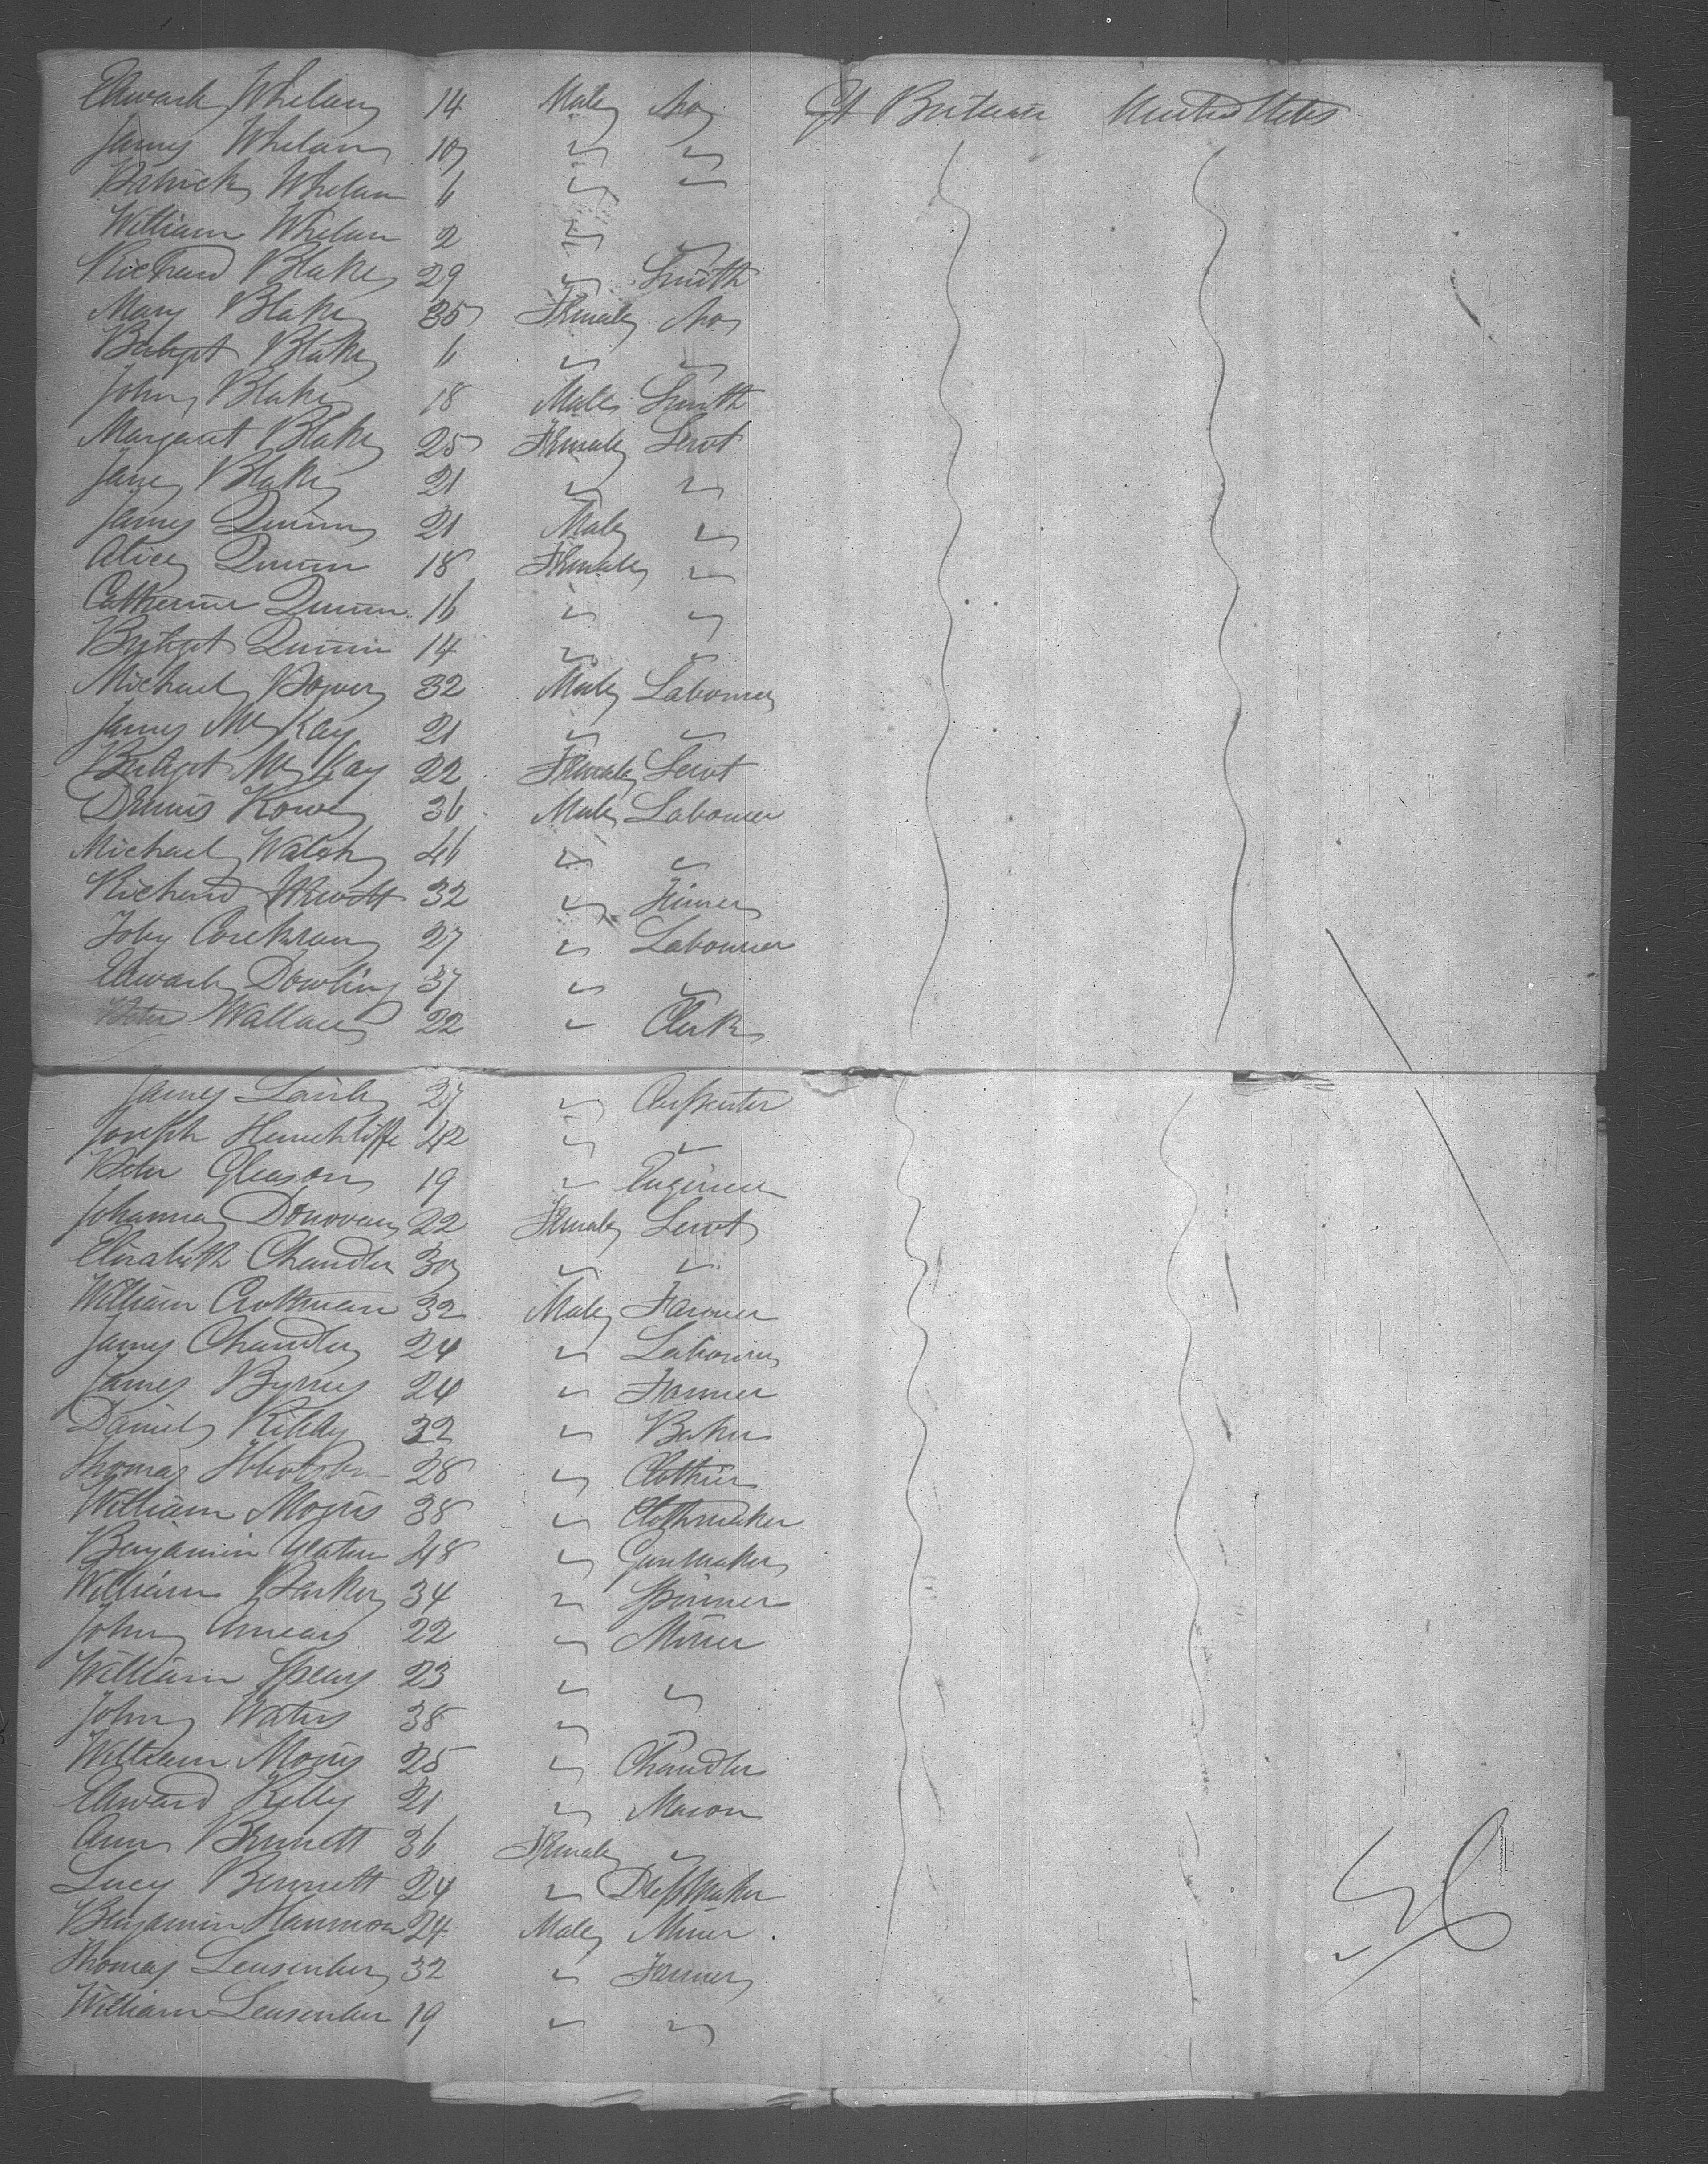 Edward Whelan 14 Male No Gt Britain United States
James Whelan 10 " "
Patrick Whelan 6 " "
William Whelan 2 " "
Richard Blake 29 " Smith
Mary Blake 35 Female No
Bridget Blake 6 " "
John Blake 18 Male Smith
Margaret Blake 25 Female Servt
Jane Blake 21 " "
James Quinn 21 Male "
Alice Quinn 18 Female "
Catherine Quinn 16 " "
Bridget Quinn 14 " "
Michael Power 32 Male Labourer
James McKay 21 " "
Bridget McKay 22 Female Servt
Dennis Rowe 36 Male Labourer
Michael Walsh 46 " "
Richard 32 "
Toby Corckran 27 " Labourer
Edward Dowling 37 " "
Peter Wallace 22 " Clerk
James 27 " Carpenter
Joseph Hinchliffe 42 " "
Peter Gleason 19 " Engineer
Johanna Donovan 22 Female Servt
Elizabeth Chandler 30 " "
William 32 Male Farmer
James Chandler 24 " Labourer
James Byrnes 24 " Farmer
Daniel 32 " Baker
Thomas 28 " Clothier
William Morris 38 " Clothmaker
Benjamin 48 " Gunmaker
William Parker 34 " Spinner
John 22 " Miner
William Spears 23 " "
John Waters 38 "
William Morris 25 " Chandler
Edward Kelly 21 " Mason
Ann Bennett 36 Female "
Lucy Bennett 24 " Dressmaker
Benjamin Hammon 24 Male Miner
Thomas 32 " Farmer
William 19 " "